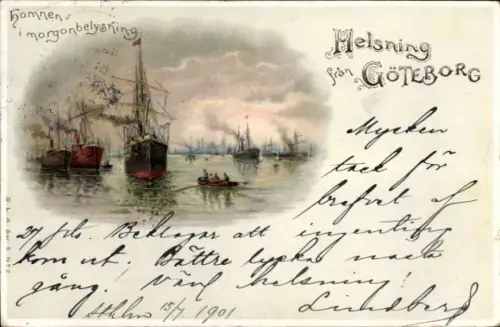 Hamnen
i morgonbelysning
Helsning
från GÖTEBORG
Mycken
tack för
brefvet af
27 fbr. Beklagar att ingenting
kom ut. Bättre lycka nästa
gång. Vänl helsning!
Sthlm 15/7 1901 Lindberg